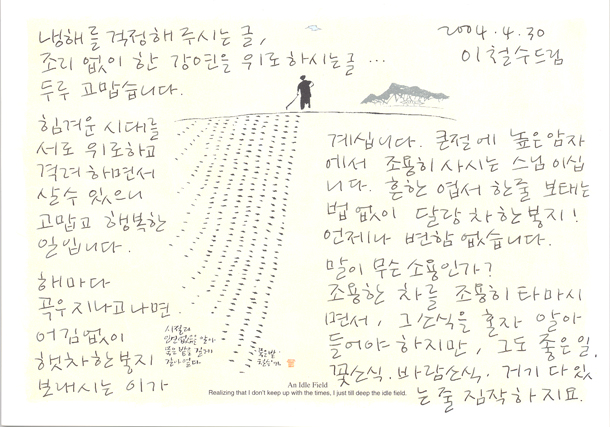 냉해를 걱정해 주시는 글,
조리 없이 한 강연을 위로하시는 글 ...
두루 고맙습니다.
힘겨운 시대를
서로 위로하고
격려하면서
살 수 있으니
고맙고 행복한
일입니다.
해마다
곡우 지나고 나면
어김없이
햇차 한 봉지
보내시는 이가
2004.4.30
이철수 드림
계십니다. 큰절에 높은 암자
에서 조용히 사시는 스님이십
니다. 흔한 엽서 한줄 보태는
법 없이 달랑 차 한 봉지!
언제나 변함없습니다.
말이 무슨 소용인가?
조용한 차를 조용히 타 마시
면서, 그 소식을 혼자 알아
들어야 하지만, 그도 좋은 일.
꽃소식. 바람소식. 거기 다 있
는 줄 짐작하지요.
시절과
인연 없음을 알아
묵은 밭을 길게
갈아 엎다
An Idle Field
Realizing that I don't keep up with the times, I just till deep the idle field.